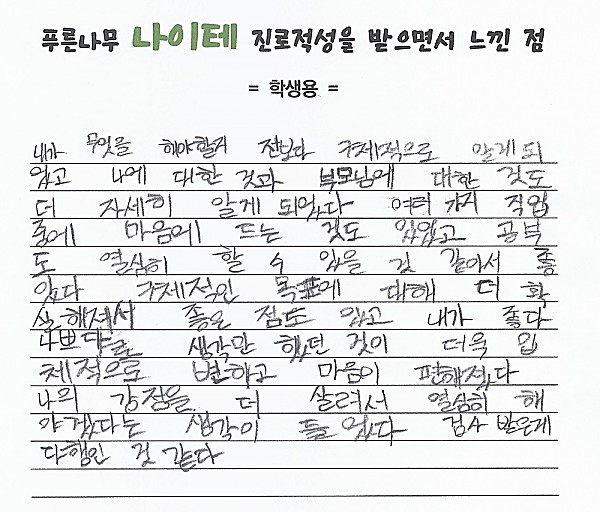 푸른나무 나이테 진로적성을 받으면서 느낀 점
= 학생용 =
내가 무엇을 해야할지 전보다 구체적으로 알게 되
었고 나에 대한 것과 부모님에 대한 것도
더 자세히 알게 되었다 여러 가지 직업
중에 마음에 드는 것도 있었고 공부
도 열심히 할 수 있을 것 같아서 좋
았다 구체적인 목표에 대해 더 확
실해져서 좋은 점도 있고 내가 좋다
나쁘다로 생각만 했던 것이 더욱 입
체적으로 변하고 마음이 편해졌다
나의 강점을 더 살려서 열심히 해
야겠다는 생각이 들었다 검사 받은게
다행인 것 같다